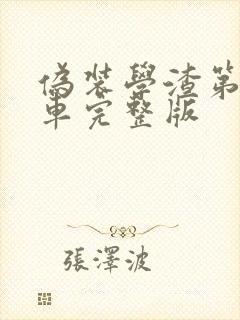 偽裝學渣第
車完整版
張澤波